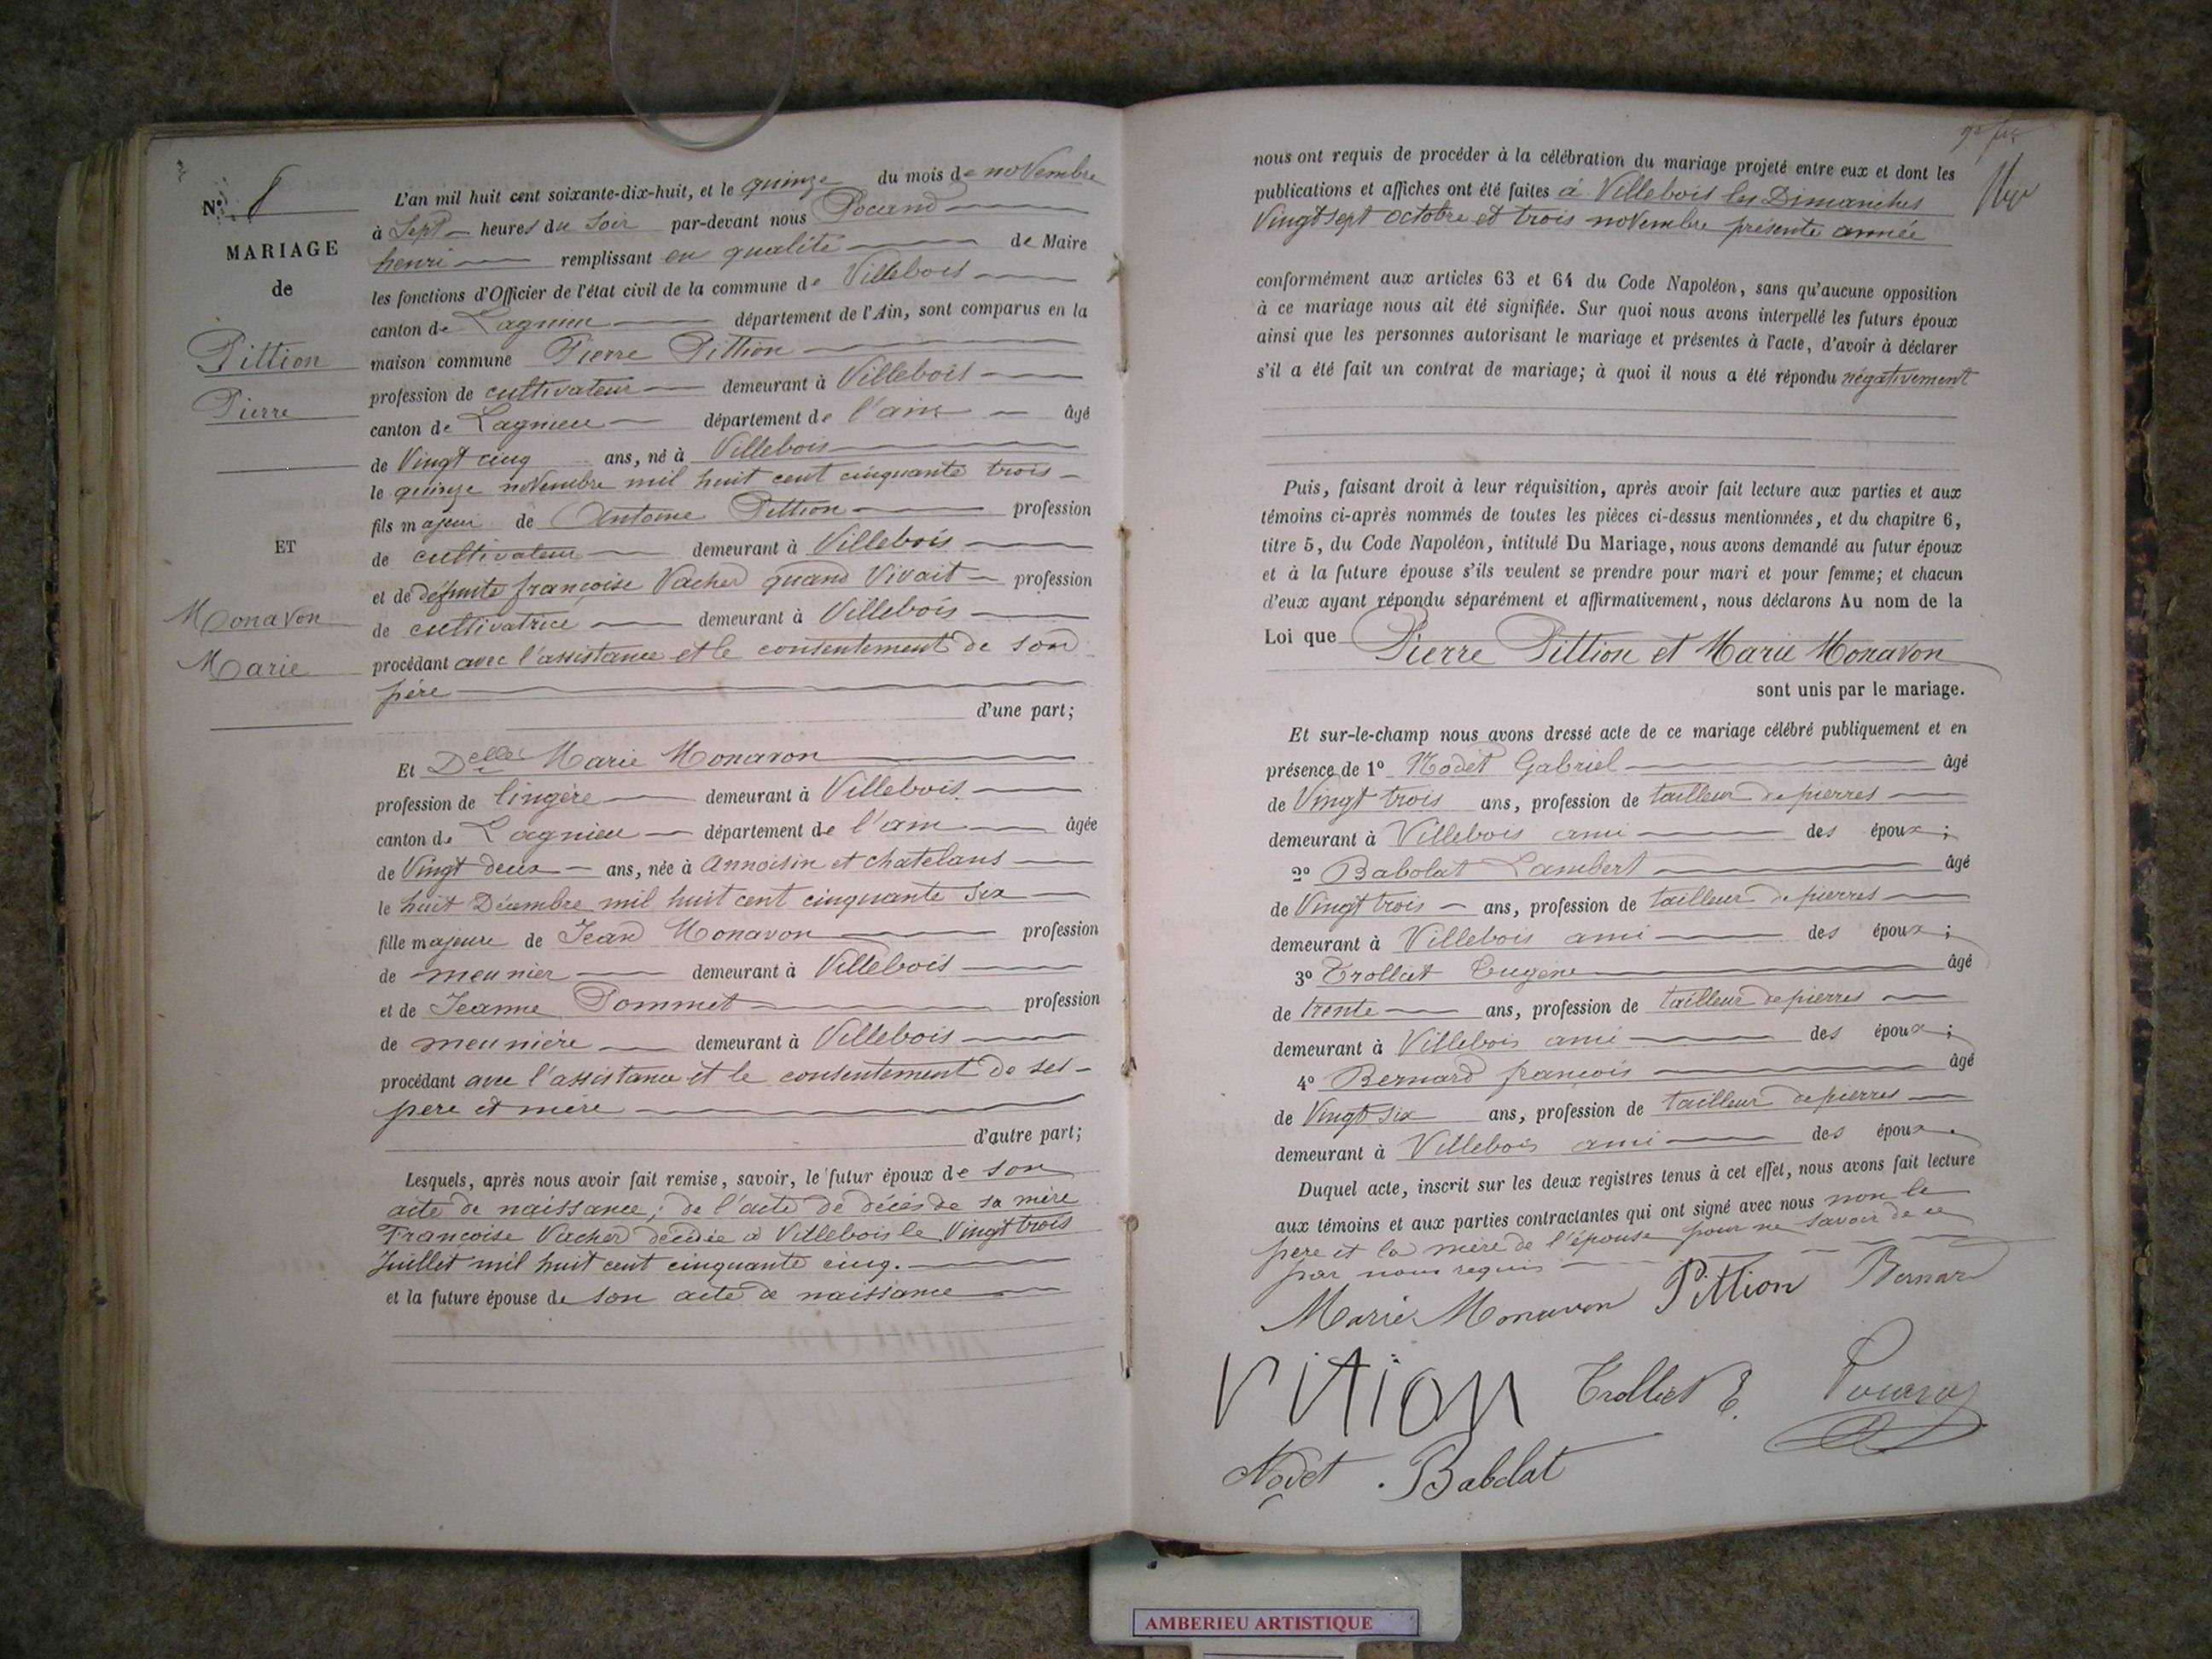 N° 8
MARIAGE
de
Pittion
Pierre
ET
Monavon
Marie
L'an mil huit cent soixante-dix-huit, et le quinze du mois de novembre
à Sept heures du Soir par-devant nous Pocand
henri remplissant en qualité de Maire
les fonctions d'Officier de l'état civil de la commune de Villebois
canton de Lagnieu département de l'Ain, sont comparus en la
maison commune Pierre Pittion
profession de cultivateur demeurant à Villebois
canton de Lagnieu département de l'ain âgé
de Vingt cinq ans, né à Villebois
le quinze novembre mil huit cent cinquante trois
fils majeur de Antoine Pittion profession
de cultivateur demeurant à Villebois
et de défunte françoise Vacher quand Vivait profession
de cultivatrice demeurant à Villebois
procédant avec l'assistance et le consentement de son
père
d'une part;
Et Delle Marie Monavon
profession de lingère demeurant à Villebois
canton de Lagnieu département de l'ain âgée
de Vingt deux ans, née à Annoisin et chatelans
le huit Décembre mil huit cent cinquante six
fille majeure de Jean Monavon profession
de meunier demeurant à Villebois
et de Jeanne Pommet profession
de meunière demeurant à Villebois
procédant avec l'assistance et le consentement de ses
père et mère
d'autre part;
Lesquels, après nous avoir fait remise, savoir, le futur époux de son
acte de naissance; de l'acte de décès de sa mère
Françoise Vacher décédée à Villebois le Vingt trois
Juillet mil huit cent cinquante cinq.
et la future épouse de son acte de naissance
nous ont requis de procéder à la célébration du mariage projeté entre eux et dont les
publications et affiches ont été faites à Villebois les Dimanches
Vingt sept octobre et trois novembre présente année
conformément aux articles 63 et 64 du Code Napoléon, sans qu'aucune opposition
à ce mariage nous ait été signifiée. Sur quoi nous avons interpellé les futurs époux
ainsi que les personnes autorisant le mariage et présentes à l'acte, d'avoir à déclarer
s'il a été fait un contrat de mariage; à quoi il nous a été répondu négativement
Puis, faisant droit à leur réquisition, après avoir fait lecture aux parties et aux
témoins ci-après nommés de toutes les pièces ci-dessus mentionnées, et du chapitre 6,
titre 5, du Code Napoléon, intitulé Du Mariage, nous avons demandé au futur époux
et à la future épouse s'ils veulent se prendre pour mari et pour femme; et chacun
d'eux ayant répondu séparément et affirmativement, nous déclarons Au nom de la
Loi que Pierre Pittion et Marie Monavon
sont unis par le mariage.
Et sur-le-champ nous avons dressé acte de ce mariage célébré publiquement et en
présence de 1° Nodet Gabriel âgé
de Vingt trois ans, profession de tailleur de pierres
demeurant à Villebois ami des époux;
2° Babolat Lambert âgé
de Vingt trois ans, profession de tailleur de pierres
demeurant à Villebois ami des époux;
3° Trolliet Eugène âgé
de trente ans, profession de tailleur de pierres
demeurant à Villebois ami des époux;
4° Bernard françois âgé
de Vingt six ans, profession de tailleur de pierres
demeurant à Villebois ami des époux.
Duquel acte, inscrit sur les deux registres tenus à cet effet, nous avons fait lecture
aux témoins et aux parties contractantes qui ont signé avec nous non le
père et la mère de l'épouse pour ne savoir de ce
par nous requis
Marie Monavon Pittion Bernard
Pition Trolliet E. Pocand
Nodet . Babolat
AMBERIEU ARTISTIQUE